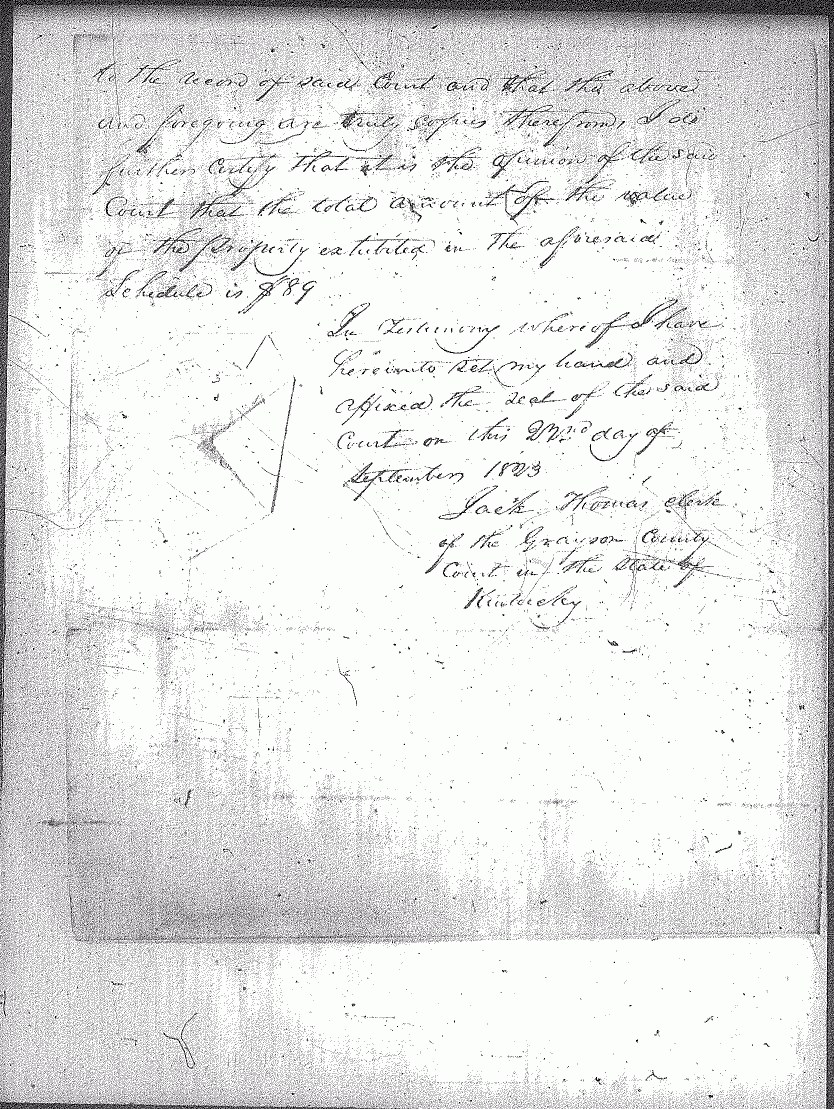 to the record of said Court and that the above
and foregoing are truly copies therefrom, I do
further Certify that it is the opinion of the said
Court that the total amount of the value
of the property exhibited in the aforesaid
Schedule is $89
In testimony whereof I have
hereunto set my hand and
affixed the seal of the said
Court on this 22nd day of
September 1823
Jack Thomas clerk
of the Grayson County
Court in the State of
Kentucky